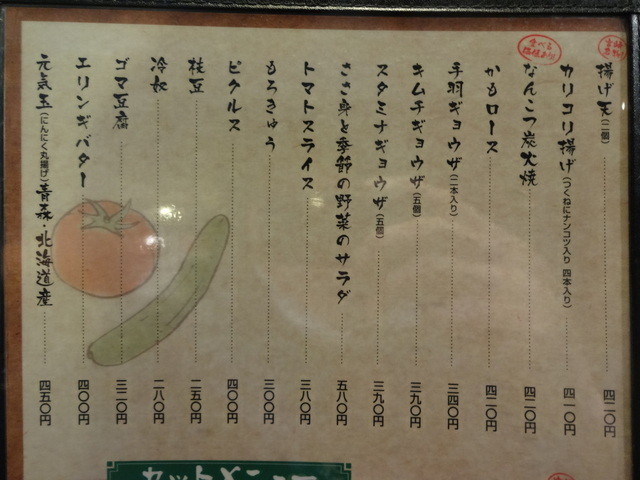 揚げ天(二個) 四二〇円
カリコリ揚げ(つくねにナンコツ入り 四本入り) 四一〇円
なんこつ炭火焼 四二〇円
かもロース 四二〇円
手羽ギョウザ(二本入り) 三四〇円
キムチギョウザ(五個) 三九〇円
スタミナギョウザ(五個) 三九〇円
ささ身と季節の野菜のサラダ 五八〇円
トマトスライス 三八〇円
もろきゅう 三〇〇円
ピクルス 四〇〇円
枝豆 二五〇円
冷奴 二八〇円
ゴマ豆腐 三二〇円
エリンギバター 四〇〇円
元気玉(にんにく丸揚げ)青森・北海道産 四五〇円